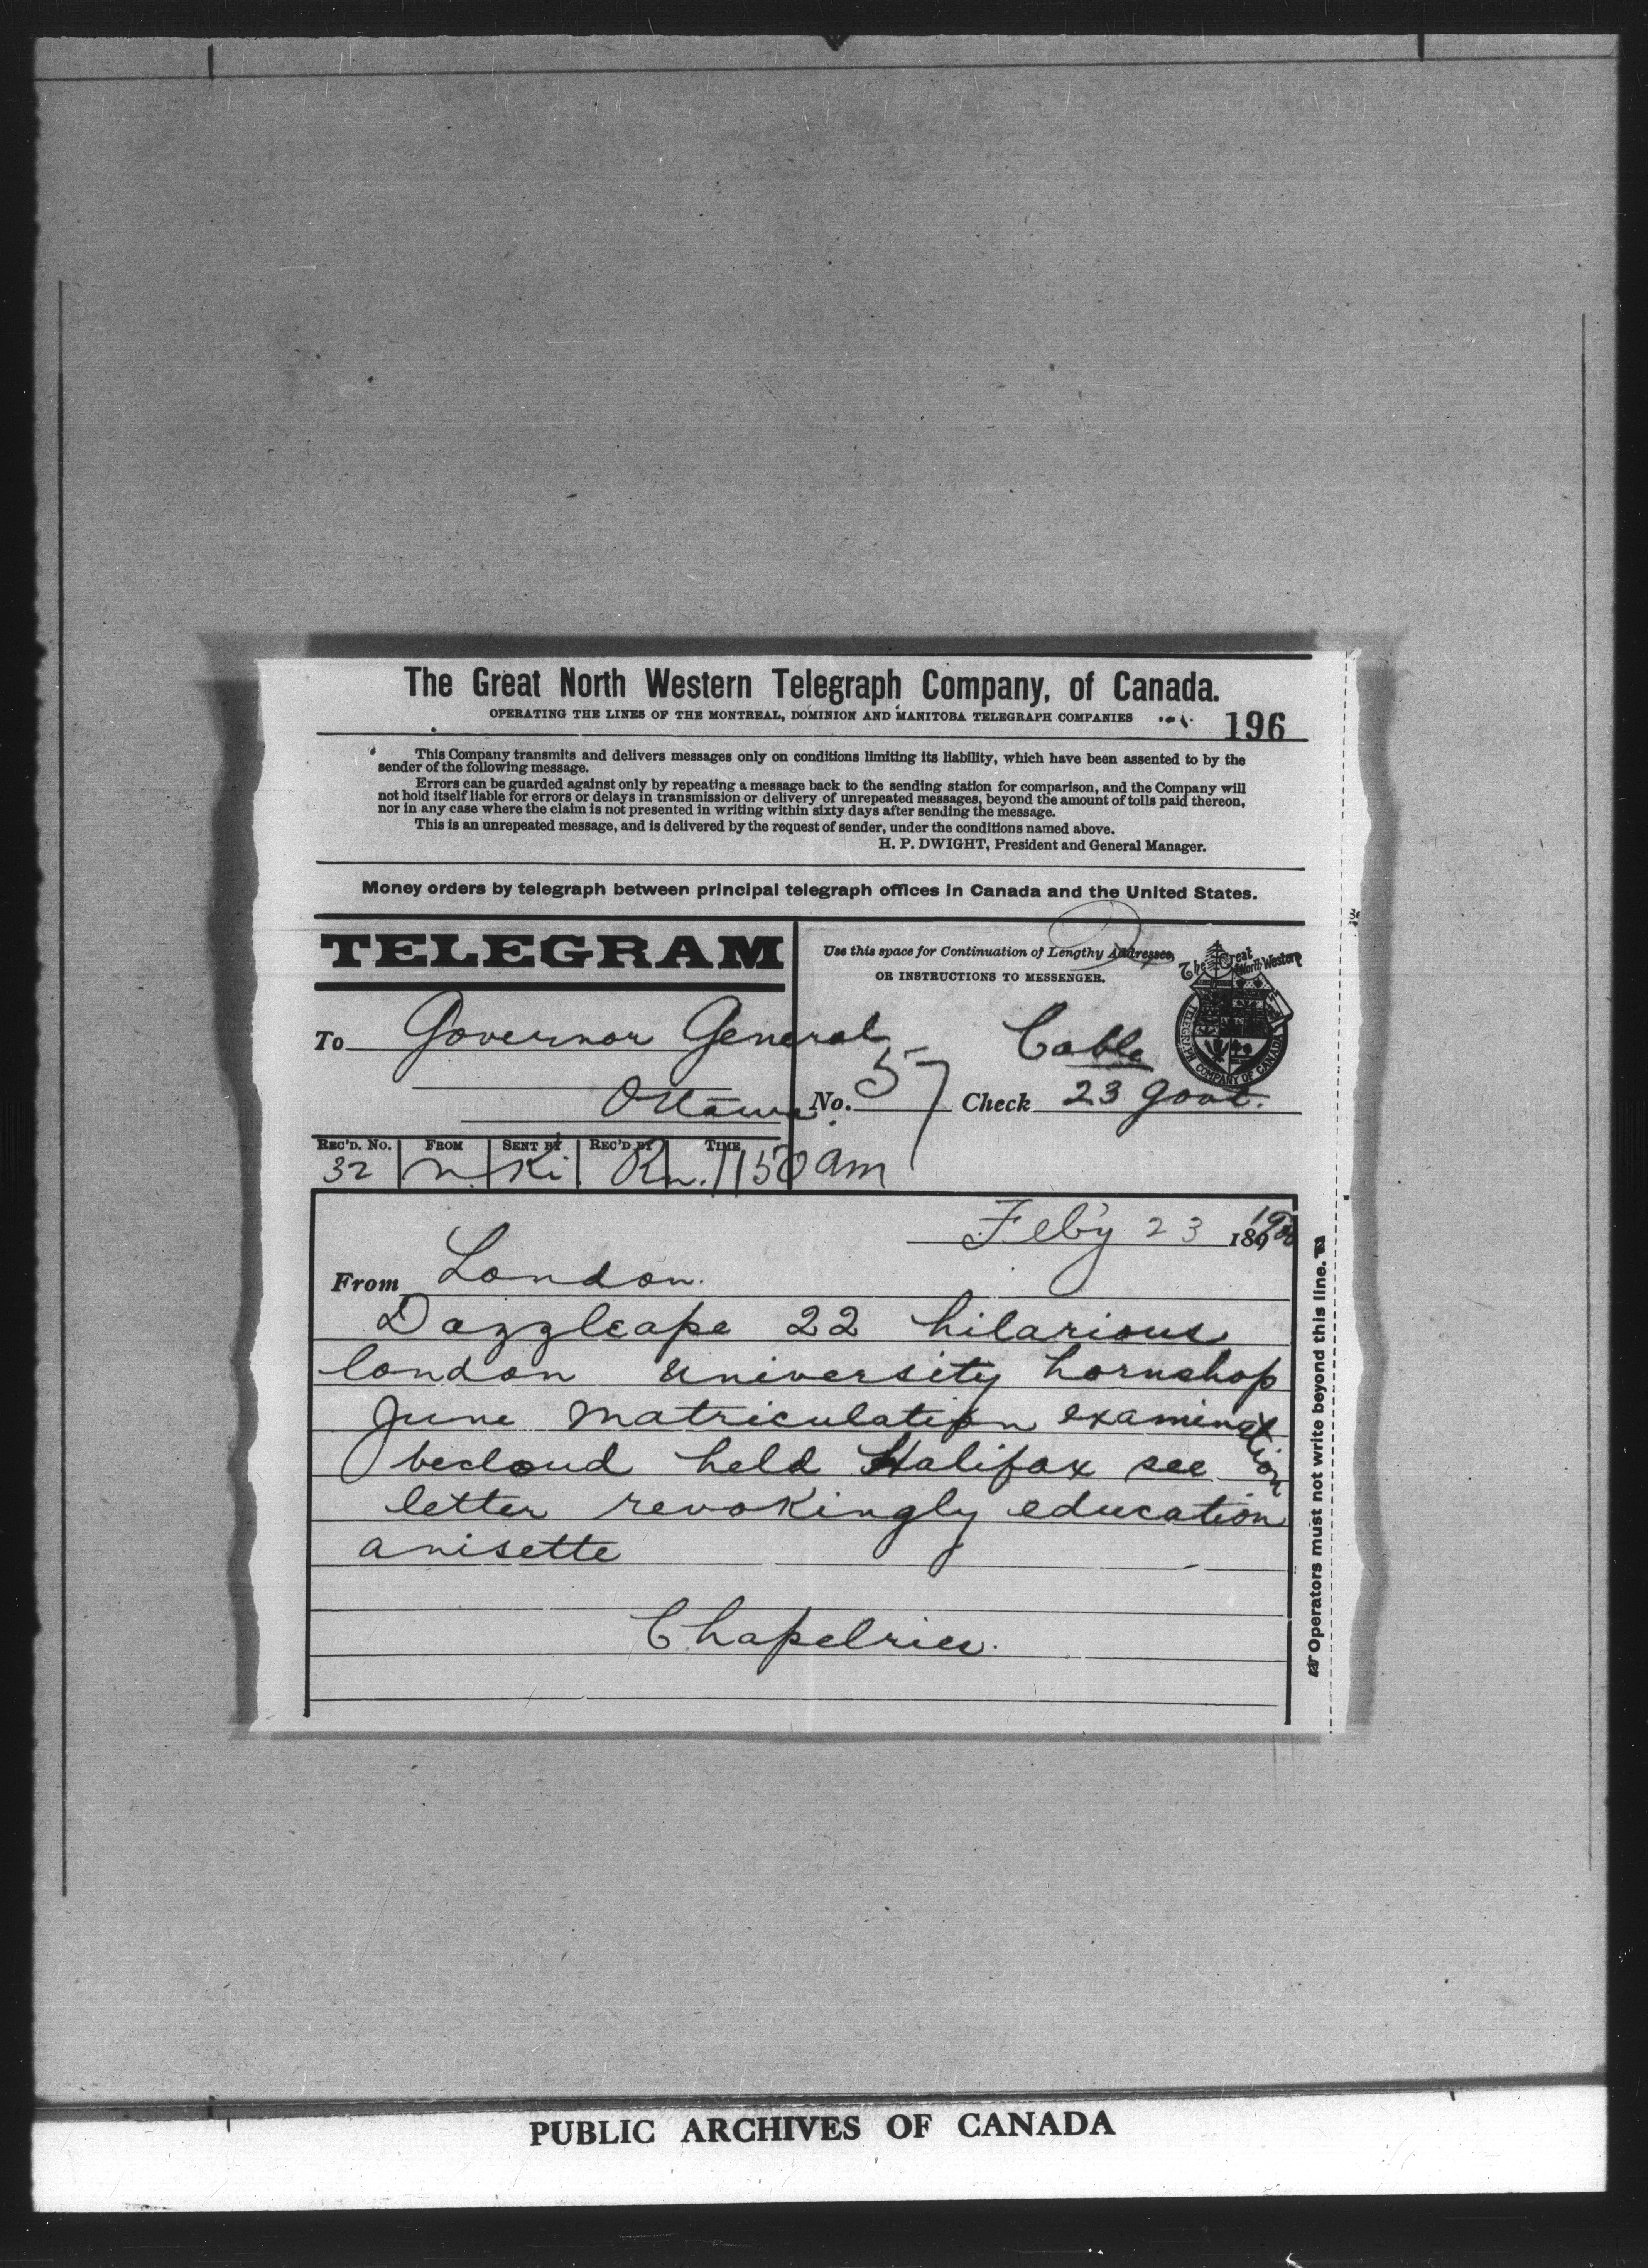 The Great North Western Telegraph Company, of Canada.
OPERATING THE LINES OF THE MONTREAL, DOMINION AND MANITOBA TELEGRAPH COMPANIES
196
This Company transmits and delivers messages only on conditions limiting its liability, which have been assented to by the
sender of the following message.
Errors can be guarded against only by repeating a message back to the sending station for comparison, and the Company will
not hold itself liable for errors or delays in transmission or delivery of unrepeated messages, beyond the amount of tolls paid thereon,
nor in any case where the claim is not presented in writing within sixty days after sending the message.
This is an unrepeated message, and is delivered by the request of sender, under the conditions named above.
H. P. DWIGHT, President and General Manager.
Money orders by telegraph between principal telegraph offices in Canada and the United States.
TELEGRAM
Use this space for Continuation of Lengthy Addresses,
OR INSTRUCTIONS TO MESSENGER.
The Great North Western
TELEGRAPH COMPANY OF CANADA
To Governor General
Cable
Ottawa
No. 57 Check 23 govt.
REC'D. No. FROM SENT BY REC'D BY TIME
32 n. Ki Rn. 1150 am
Feb'y 23 1900
From London.
Dazzleape 22 hilarious
london university hornshop
June matriculation examination
becloud held Halifax see
letter revokingly education
anisette
Chapelries.
Operators must not write beyond this line.
PUBLIC ARCHIVES OF CANADA